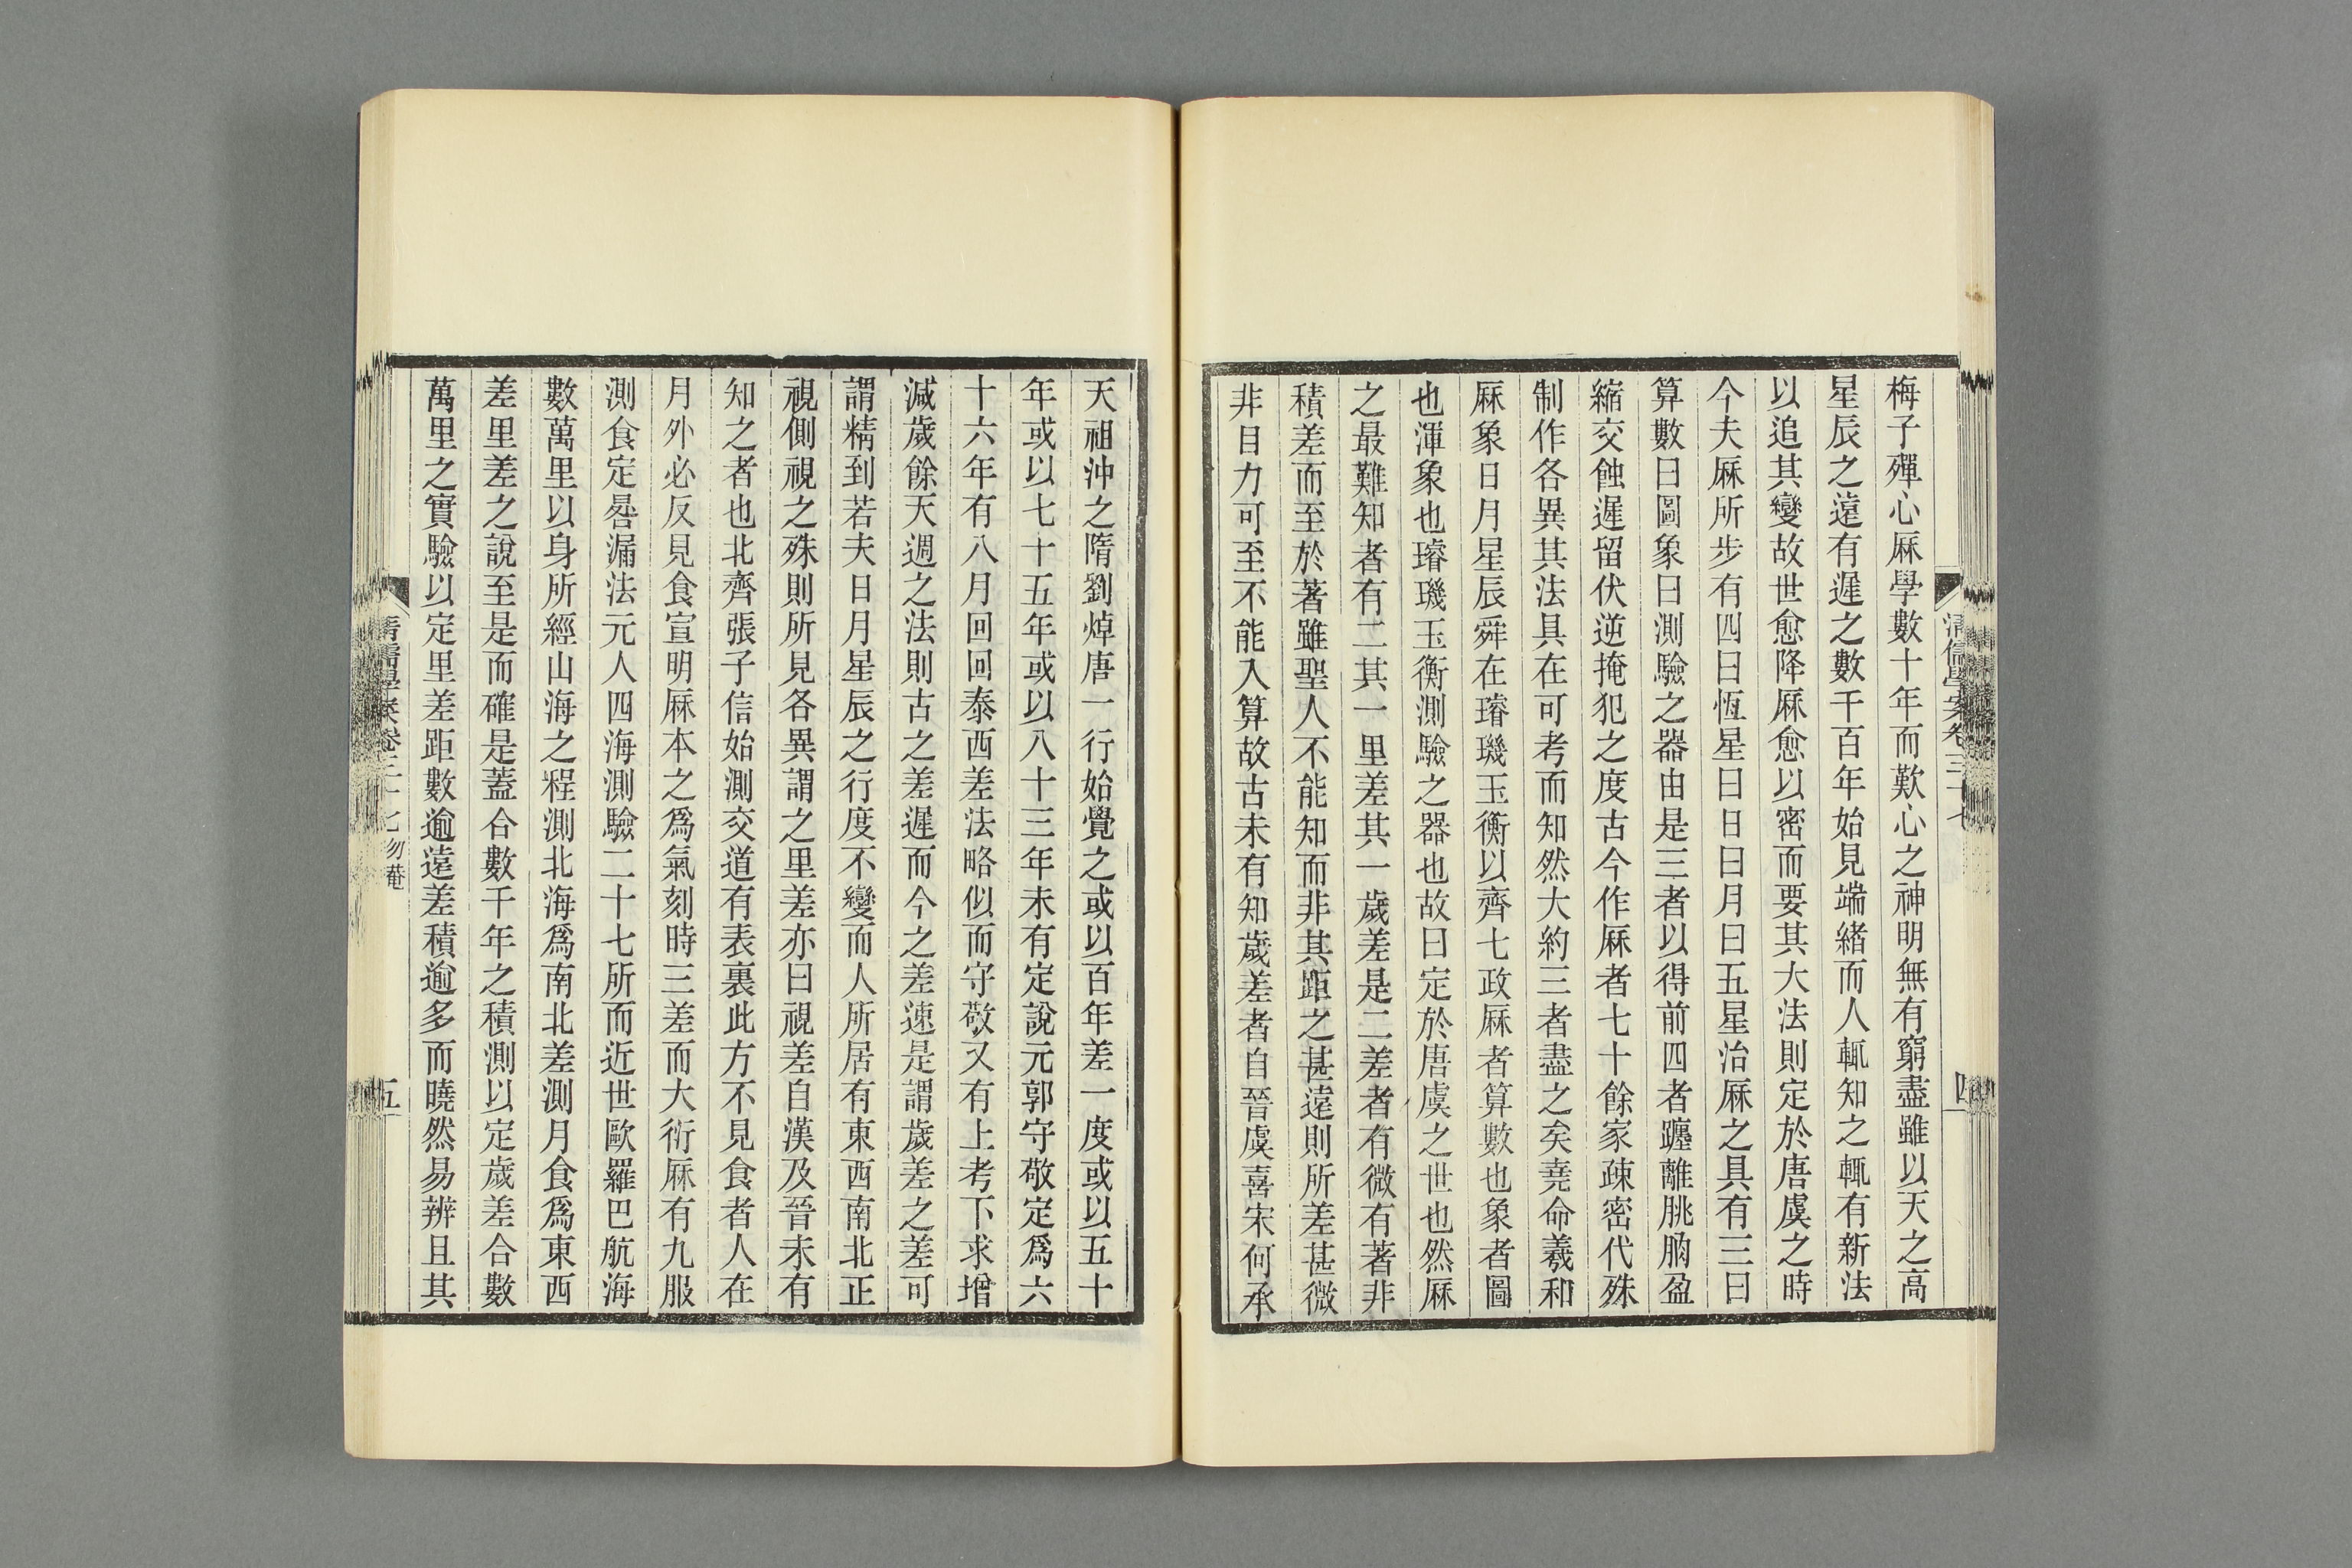 清儒學案卷三十七
四
梅子殫心厤學數十年而歎心之神明無有窮盡雖以天之高
星辰之遠有遲之數千百年始見端緒而人輒知之輒有新法
以追其變故世愈降厤愈以密而要其大法則定於唐虞之時
今夫厤所步有四曰恆星曰日曰月曰五星治厤之具有三曰
算數曰圖象曰測驗之器由是三者以得前四者躔離朓朒盈
縮交蝕遲留伏逆掩犯之度古今作厤者七十餘家疎密代殊
制作各異其法具在可考而知然大約三者盡之矣堯命羲和
厤象日月星辰舜在璿璣玉衡以齊七政厤者算數也象者圖
也渾象也璿璣玉衡測驗之器也故曰定於唐虞之世也然厤
之最難知者有二其一里差其一歲差是二差者有微有著非
積差而至於著雖聖人不能知而非其距之甚遠則所差甚微
非目力可至不能入算故古未有知歲差者自晉虞喜宋何承
天祖沖之隋劉焯唐一行始覺之或以百年差一度或以五十
年或以七十五年或以八十三年未有定說元郭守敬定爲六
十六年有八月回回泰西差法略似而守敬又有上考下求增
減歲餘天週之法則古之差遲而今之差速是謂歲差之差可
謂精到若夫日月星辰之行度不變而人所居有東西南北正
視側視之殊則所見各異謂之里差亦曰視差自漢及晉未有
知之者也北齊張子信始測交道有表裏此方不見食者人在
月外必反見食宣明厤本之爲氣刻時三差而大衍厤有九服
測食定晷漏法元人四海測驗二十七所而近世歐羅巴航海
數萬里以身所經山海之程測北海爲南北差測月食爲東西
差里差之說至是而確是蓋合數千年之積測以定歲差合數
萬里之實驗以定里差距數逾遠差積逾多而曉然易辨且其
清儒學案卷三十七 勿菴
五